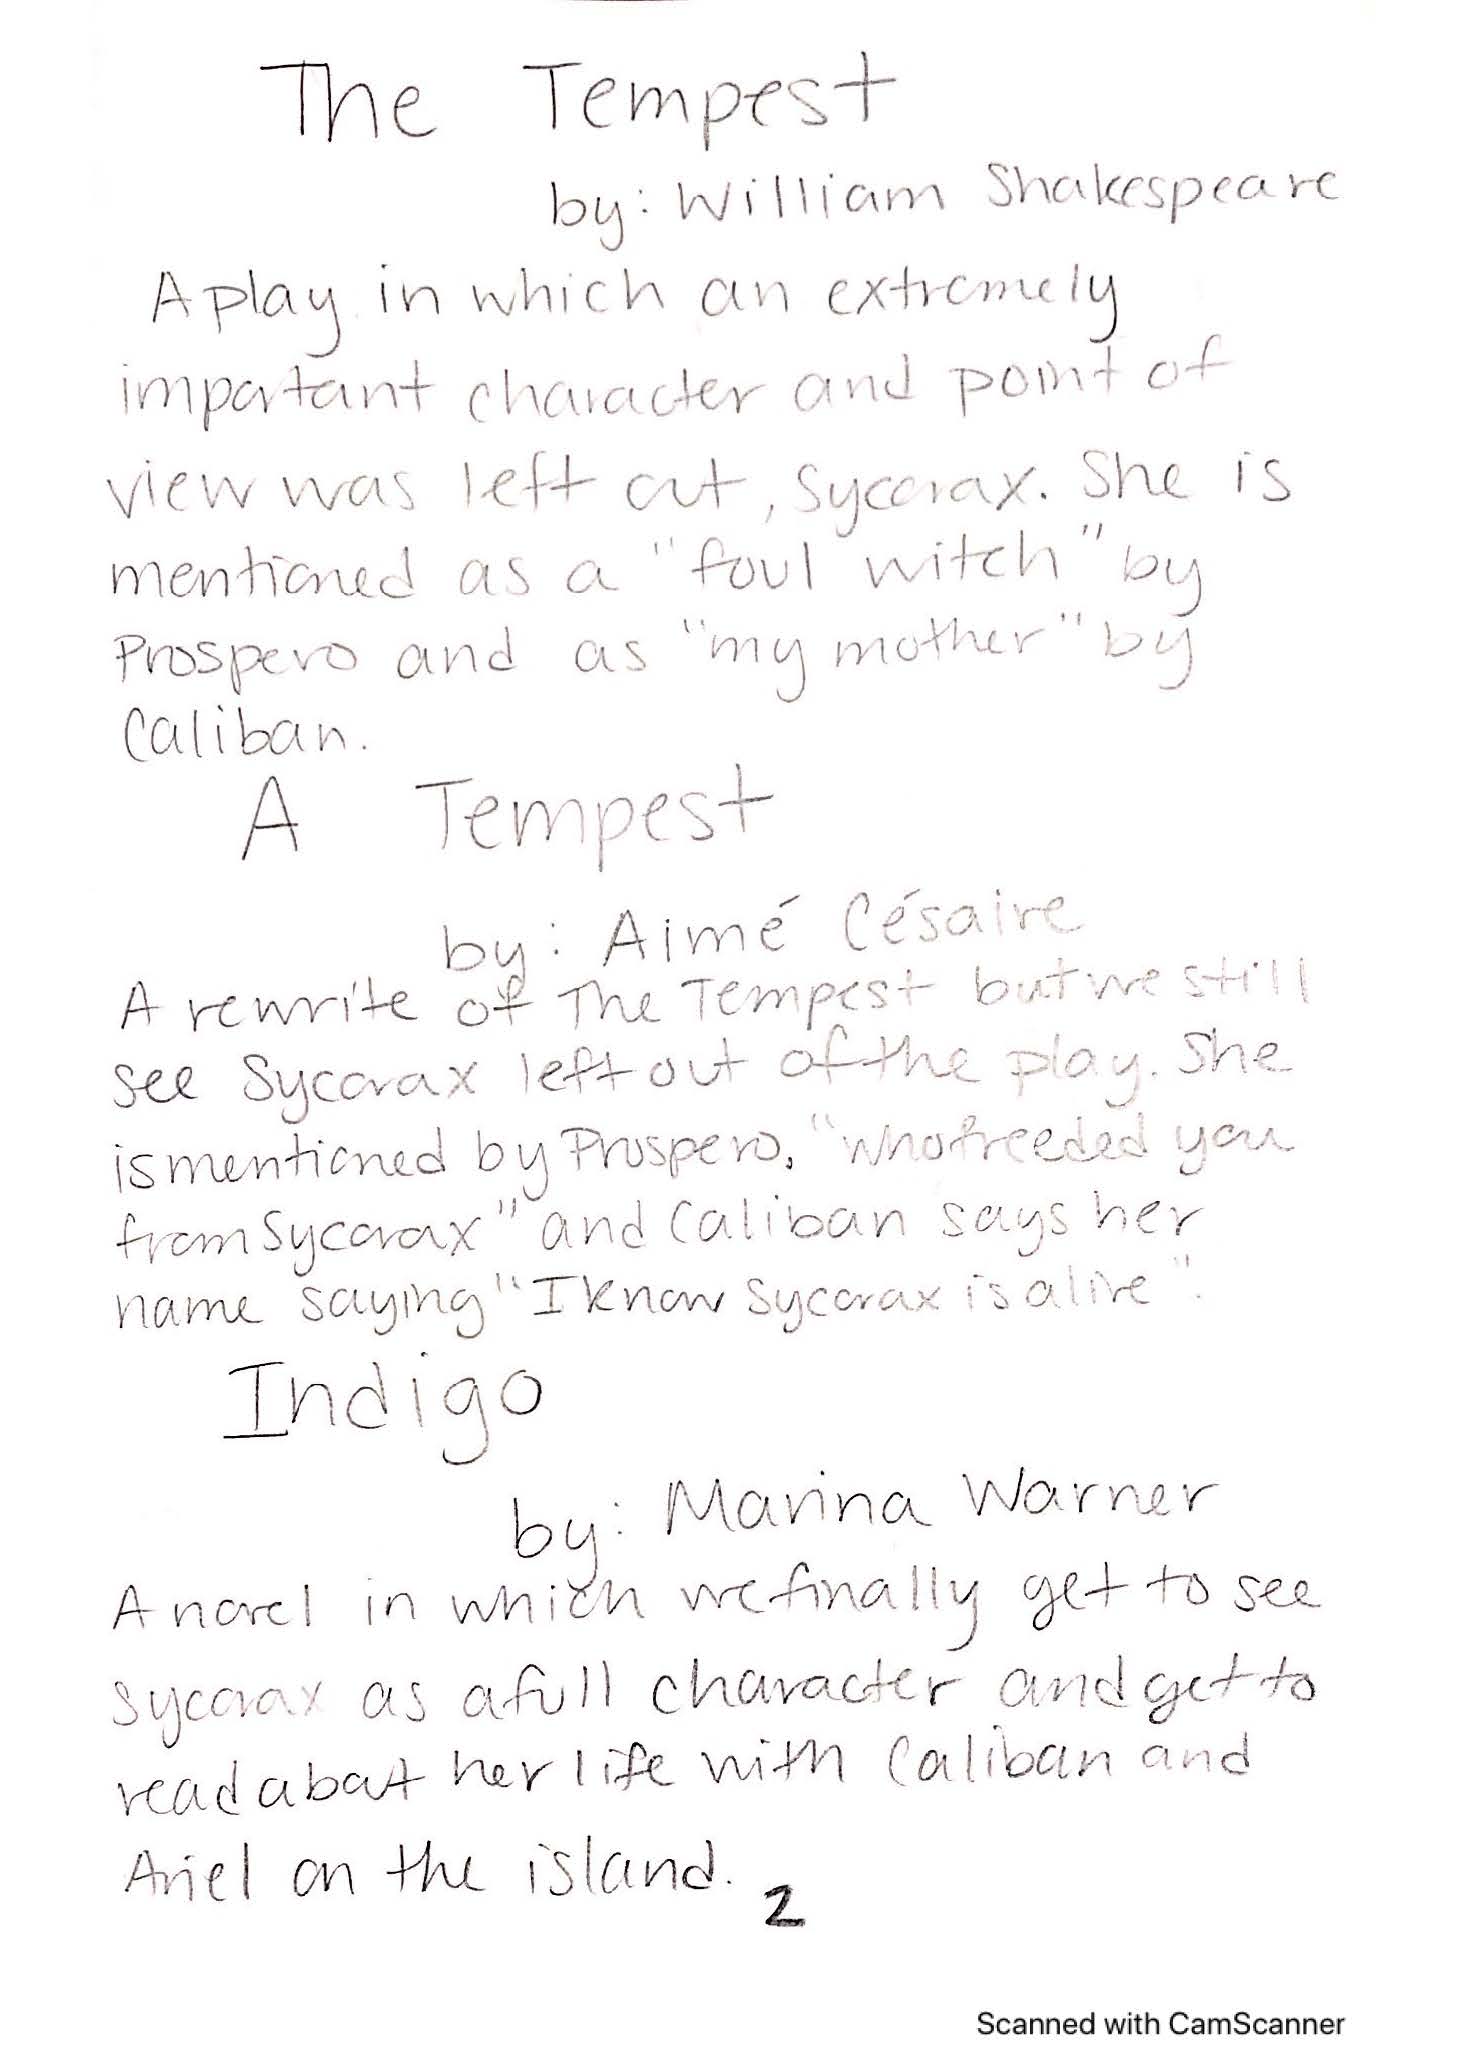 The Tempest
by: William Shakespeare
A play in which an extremely
important character and point of
view was left out, Sycorax. She is
mentioned as a "foul witch" by
Prospero and as "my mother" by
Caliban.
A Tempest
by: Aimé Césaire
A rewrite of The Tempest but we still
see Sycorax left out of the play. She
is mentioned by Prospero, "who freeded you
from Sycorax" and Caliban says her
name saying "I know Sycorax is alive".
Indigo
by: Marina Warner
A novel in which we finally get to see
Sycorax as a full character and get to
read about her life with Caliban and
Ariel on the island.
2
Scanned with CamScanner